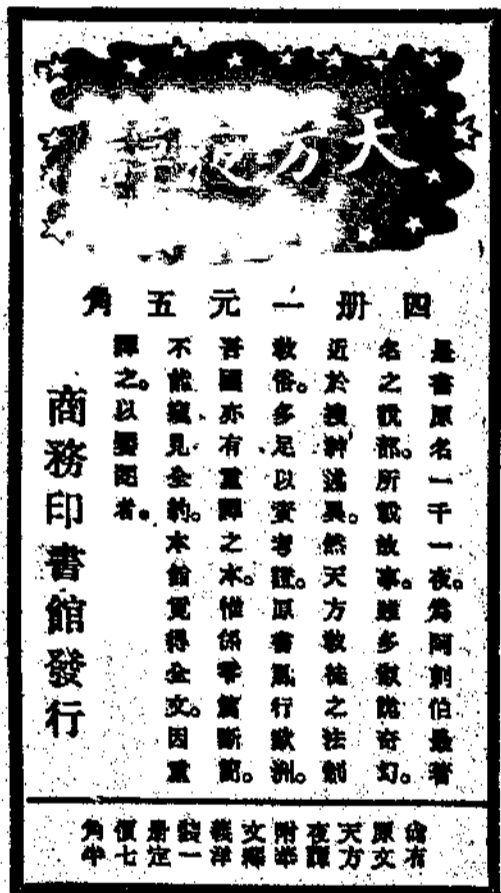 天方夜譚
四册一元五角
是書原名一千一夜。爲阿剌伯最著
名之說部。所載故事。雖多俶詭奇幻。
近於搜神述異。然天方教徒之法制
教俗。多足以資考證。原書風行歐洲。
吾國亦有重譯之本。惟係零篇斷簡。
不能窺見全豹。本館覓得全文。因重
譯之。以饜閱者。
商務印書館發行
尙有
原文
天方
夜譚
附華
文釋
義洋
裝一
册定
價七
角半